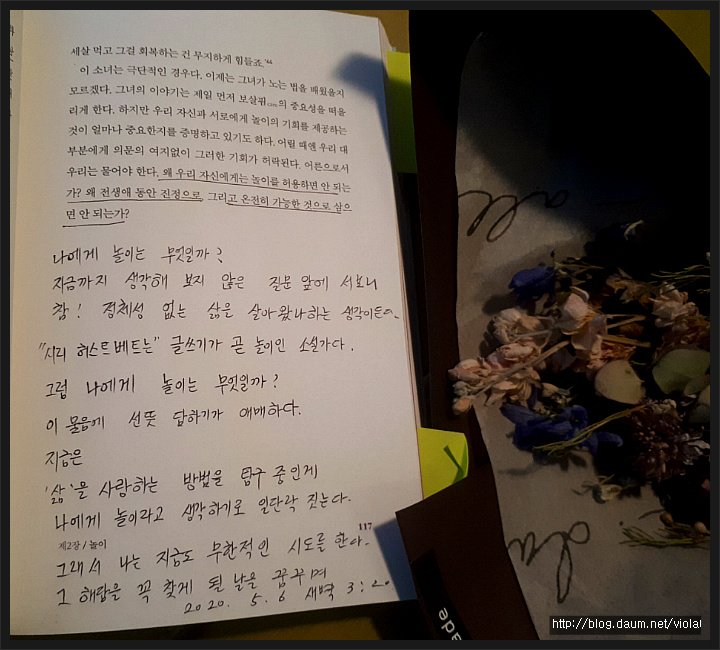 세살 먹고 그걸 회복하는 건 무지하게 힘들죠."44
이 소녀는 극단적인 경우다. 이제는 그녀가 노는 법을 배웠을지
모르겠다. 그녀의 이야기는 제일 먼저 보살핌care의 중요성을 떠올
리게 한다. 하지만 우리 자신과 서로에게 놀이의 기회를 제공하는
것이 얼마나 중요한지를 증명하고 있기도 하다. 어릴 때엔 우리 대
부분에게 의문의 여지없이 그러한 기회가 허락된다. 어른으로서
우리는 물어야 한다. 왜 우리 자신에게는 놀이를 허용하면 안 되는
가? 왜 전생애 동안 진정으로, 그리고 온전히 가능한 것으로 삼으
면 안 되는가?
나에게 놀이는 무엇일까?
지금까지 생각해 보지 않은 질문 앞에 서보니
참! 정체성 없는 삶은 살아왔나하는 생각이든다.
"시리 허스트베트는" 글쓰기가 곧 놀이인 소설가다.
그럼 나에게 놀이는 무엇일까?
이 물음에 선뜻 답하기가 애매하다.
지금은
'삶'을 사랑하는 방법을 탐구 중인게
나에게 놀이라고 생각하기로 일단락 짓는다.
117
제2장 / 놀이
그래서 나는 지금도 무한적인 시도를 한다.
그 해답을 꼭 찾게 될 날을 꿈꾸며
2020. 5. 6 새벽 3:20
all
da
ade
http://blog.daum.net/violal